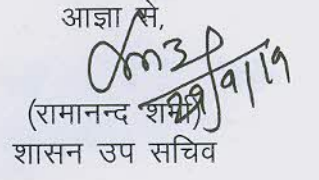 आज्ञा से,
(रामानन्द शर्मा)
शासन उप सचिव